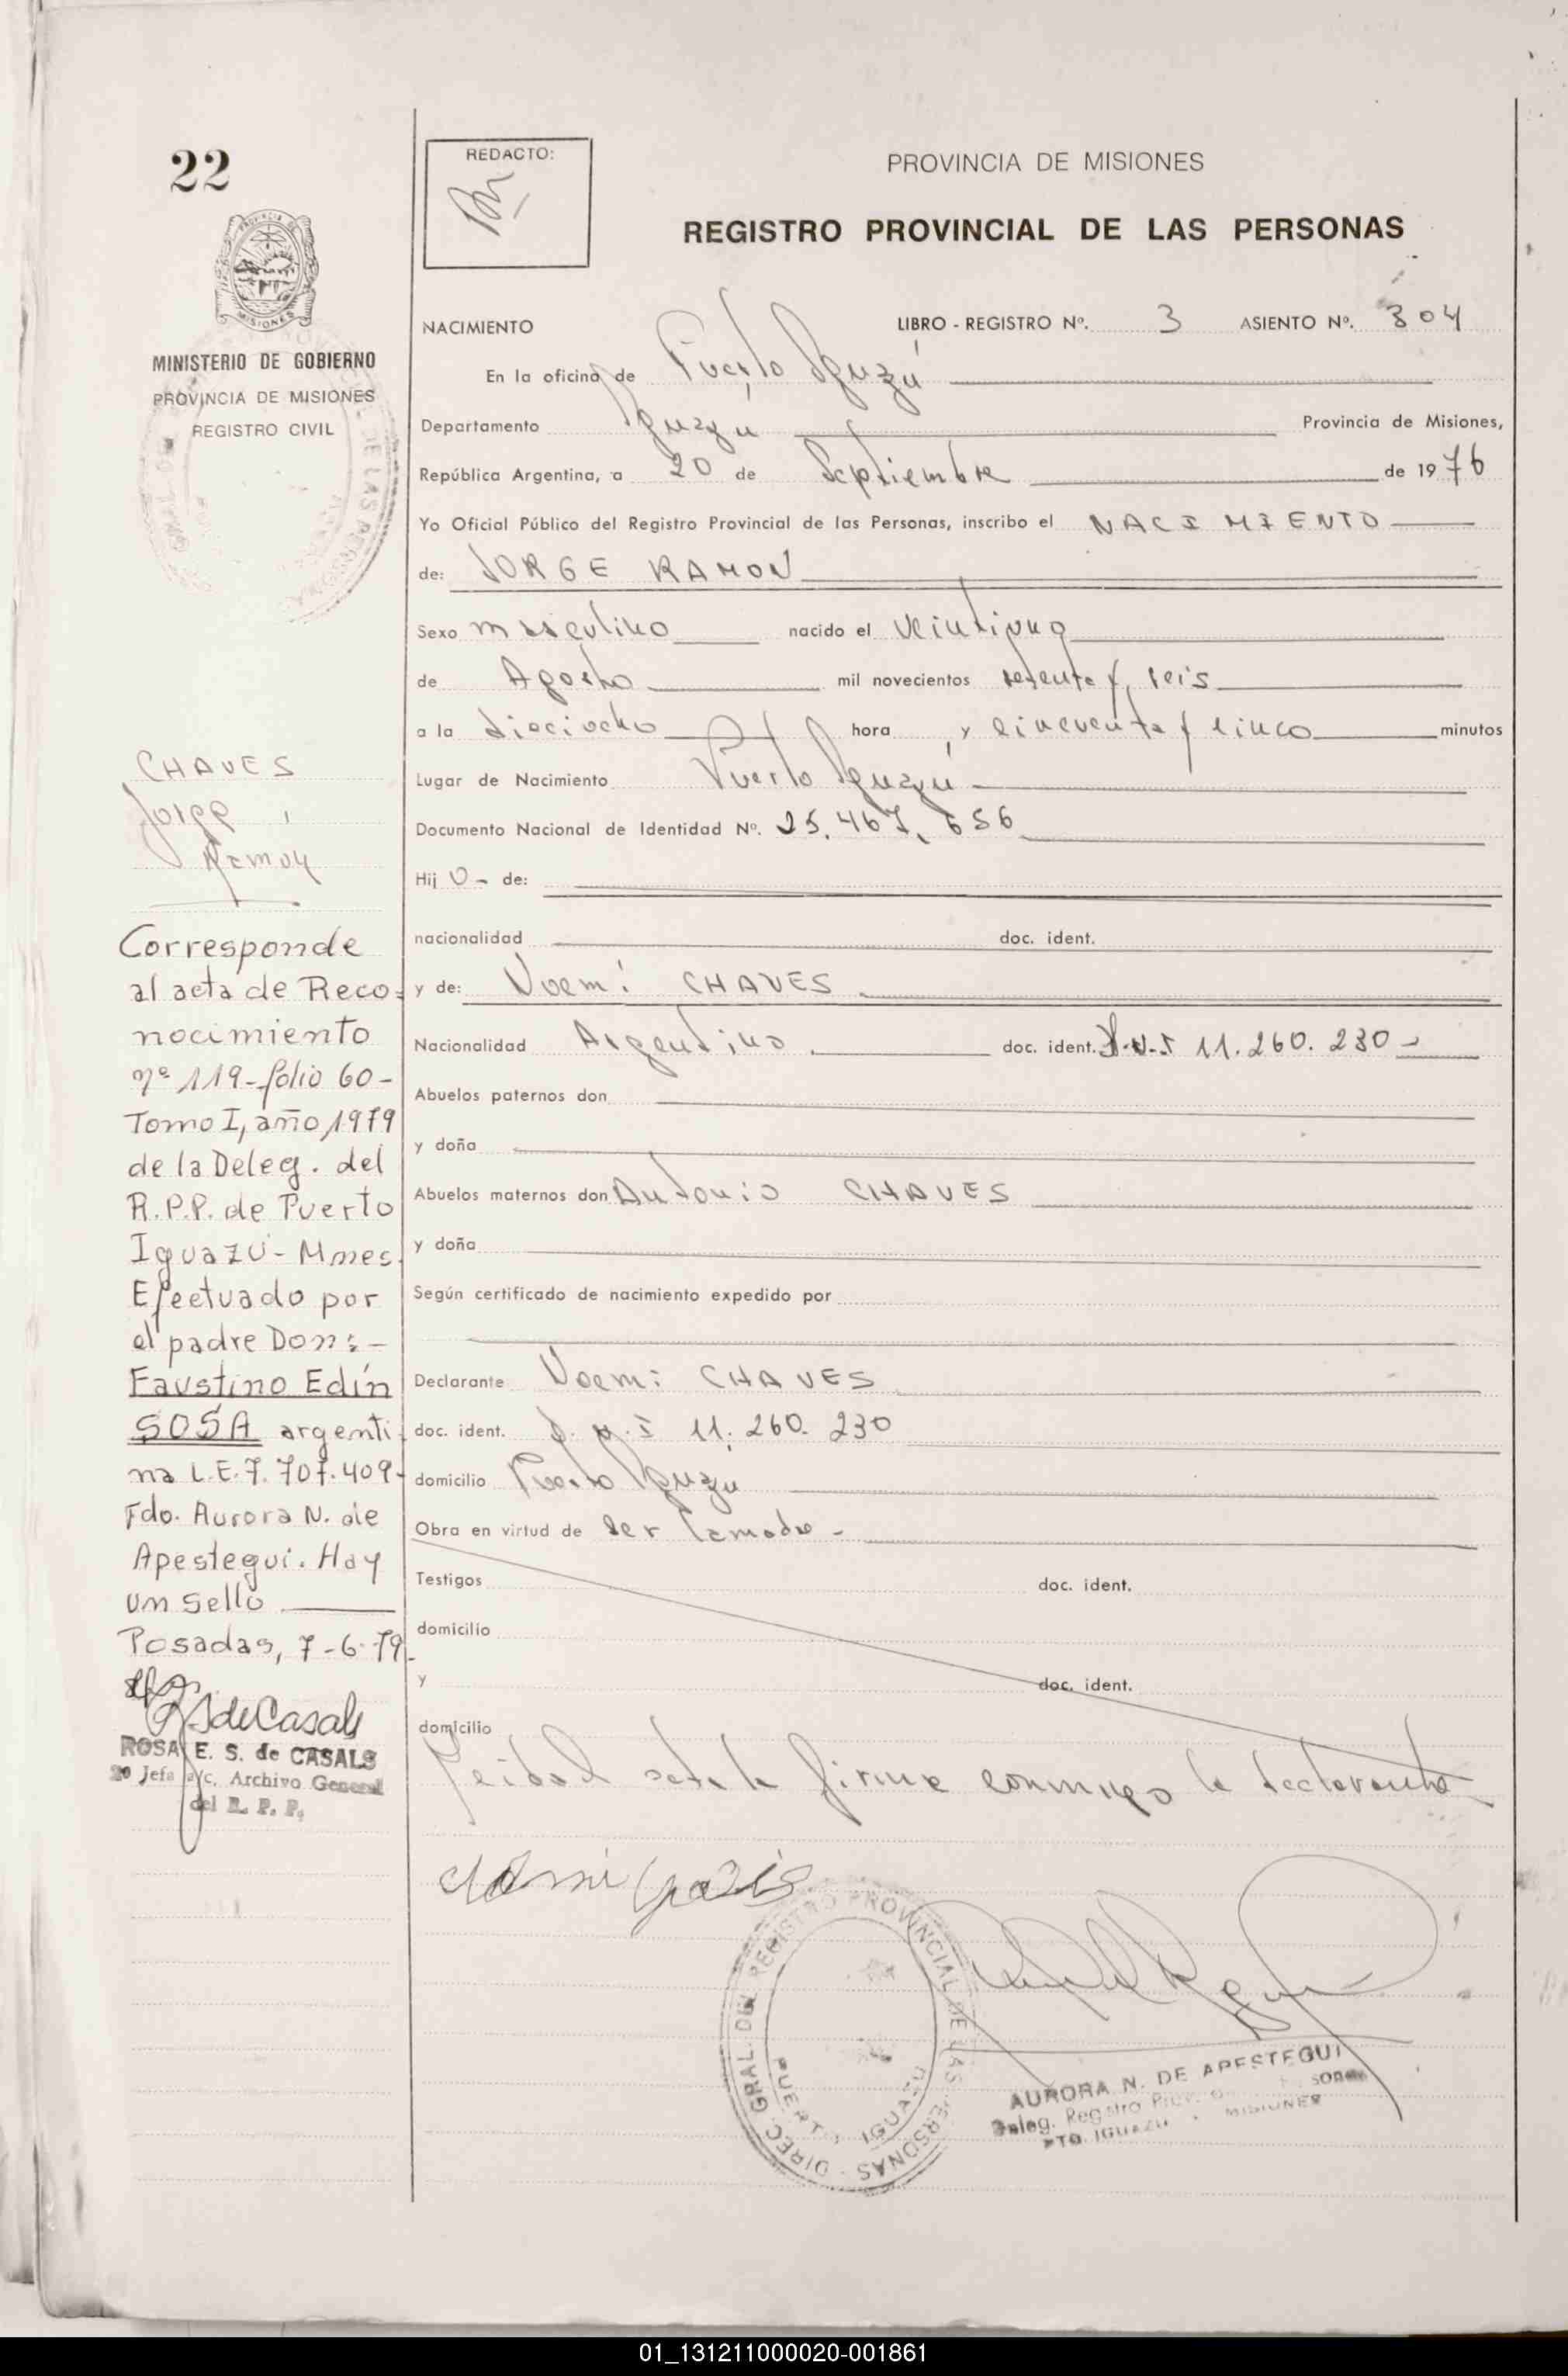 22
MINISTERIO DE GOBIERNO
PROVINCIA DE MISIONES
REGISTRO CIVIL
CHAVES
Jorge
Ramon
Corresponde
al acta de Reco-
nocimiento
nº 119-folio 60-
Tomo I, año 1979
de la Deleg. del
R.P.P. de Puerto
Iguazú - Mnes.
Efectuado por
el padre Don:-
Faustino Edín
SOSA argenti-
na L.E. 7.707.409-
Fdo. Aurora N. de
Apestegui. Hay
un sello
Posadas, 7-6-79.
ROSA E. S. de CASALS
2º Jefa a/c. Archivo General
del R. P. P.
REDACTO:
PROVINCIA DE MISIONES
REGISTRO PROVINCIAL DE LAS PERSONAS
NACIMIENTO LIBRO - REGISTRO Nº. 3 ASIENTO Nº. 304
En la oficina de Puerto Iguazú
Departamento Iguazú Provincia de Misiones,
República Argentina, a 20 de Septiembre de 1976
Yo Oficial Público del Registro Provincial de las Personas, inscribo el NACIMIENTO
de: JORGE RAMON
Sexo masculino nacido el veintiuno
de Agosto mil novecientos setenta y seis
a la dieciocho hora y cincuenta y cinco minutos
Lugar de Nacimiento Puerto Iguazú
Documento Nacional de Identidad Nº. 25.467.656
Hij o- de:
nacionalidad doc. ident.
y de: Noemí CHAVES
Nacionalidad Argentina doc. ident. D.N.I 11.260.230-
Abuelos paternos don
y doña
Abuelos maternos don Antonio CHAVES
y doña
Según certificado de nacimiento expedido por
Declarante Noemi CHAVES
doc. ident. D.N.I 11.260.230
domicilio Puerto Iguazu
Obra en virtud de ser la madre -
Testigos doc. ident.
domicilio
y doc. ident.
domicilio
Leida el acta la firma conmigo la declarante
DIREC. GRAL. DEL REGISTRO PROVINCIAL DE LAS PERSONAS
PUERTO IGUAZU
AURORA N. DE APESTEGUI
Deleg. Registro
PTO. IGUAZU - MISIONES
01_131211000020-001861